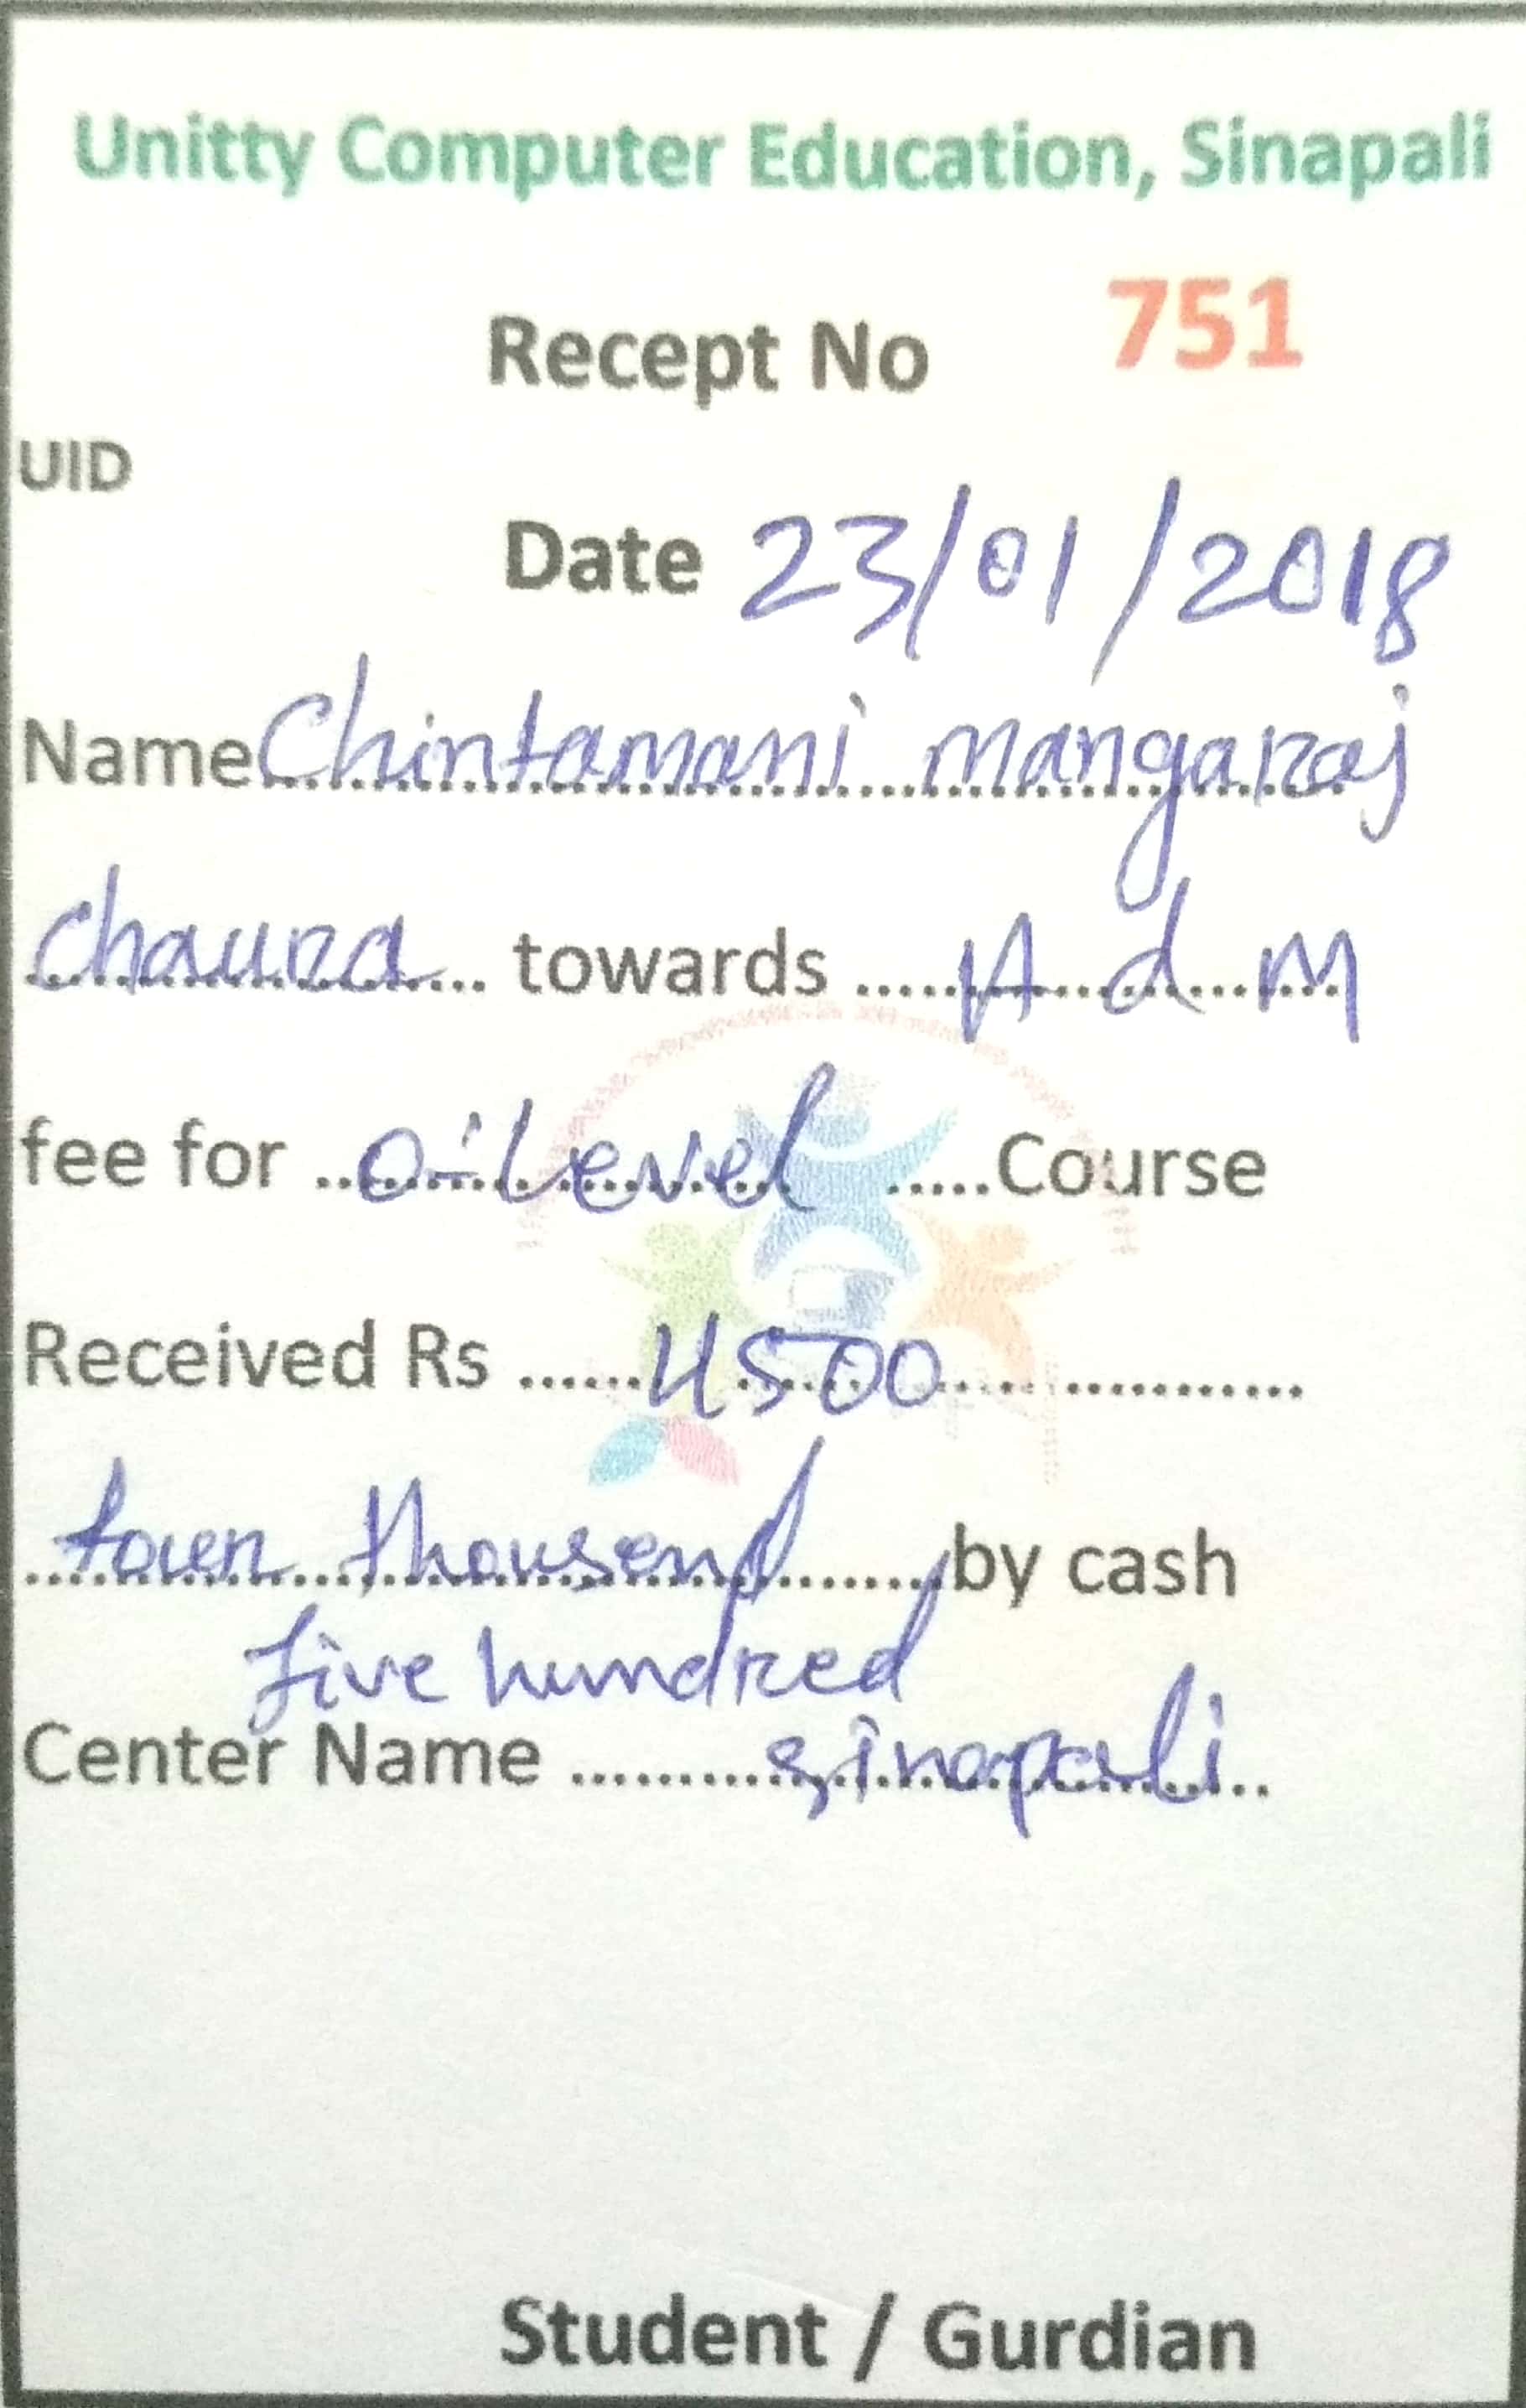 Unitty Computer Education, Sinapali
Recept No 751
UID
Date 23/01/2018
Name Chintamani mangaraj
chaura towards A d M
fee for O-Level Course
Received Rs 4500
four thousend by cash
five hundred
Center Name sinapali
Student / Gurdian